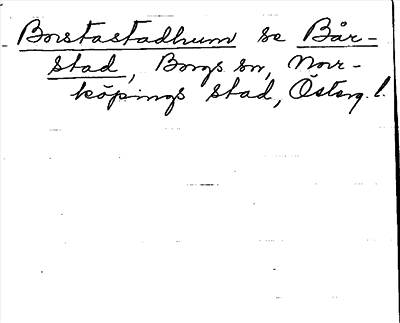 Borstastadhum se Bår-
stad, Borgs sn, Norr-
köpings stad, Österg. l.